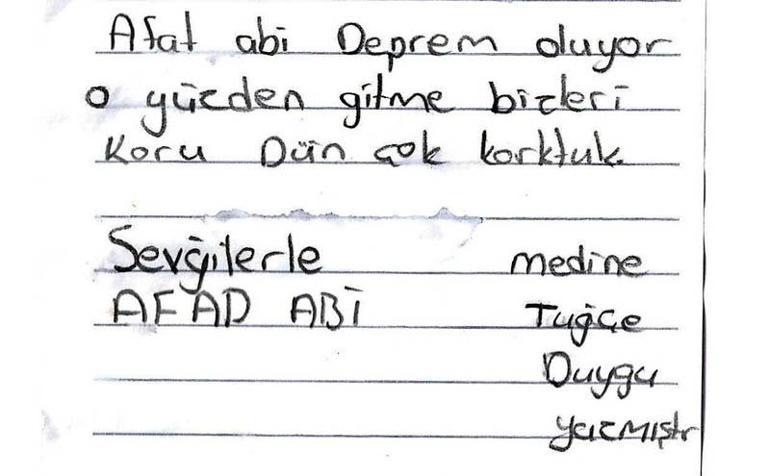 Afat abi Deprem oluyor
o yüzden gitme bizleri
Koru Dün çok korktuk.
Sevğilerle medine
AFAD ABİ Tuğçe
Duygu
yazmıştr